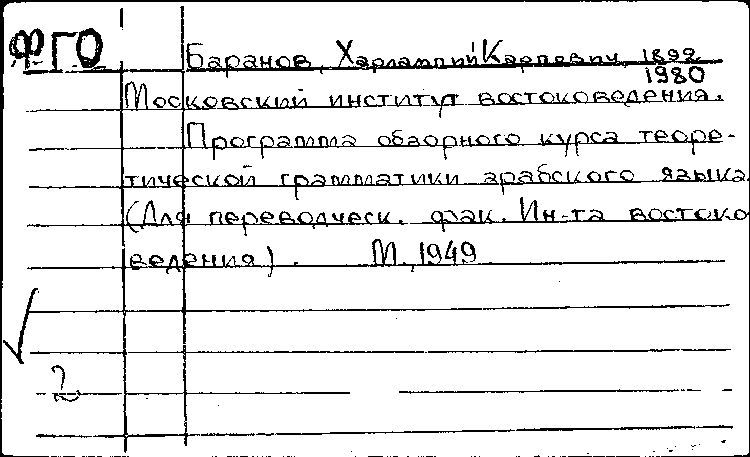 ФГО
Баранов, Харлампий Карпевич, 1892
1980
Московский институт востоковедения.
Программа обзорного курса теоре-
тической грамматики арабского языка.
(Для переводческ. фак. Ин-та востоко
ведения). М., 1949
2